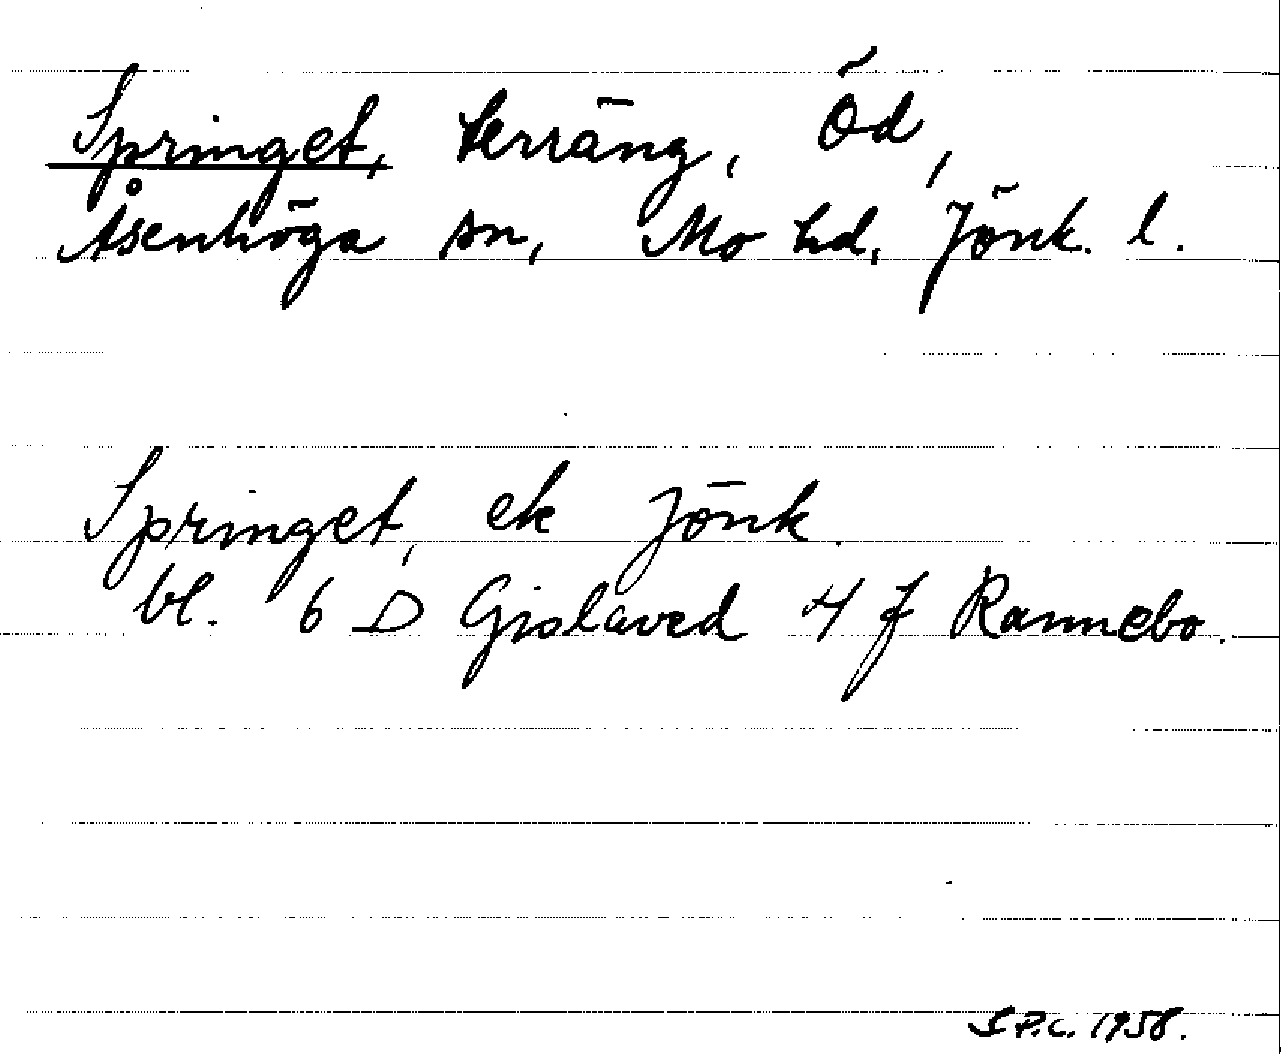 Springet, terräng, Öd,
Åsenhöga sn, Mo hd, Jönk. l.
Springet, ek Jönk.
bl. 6 D Gislaved 4 f Rannebo.
S P.C. 1958.